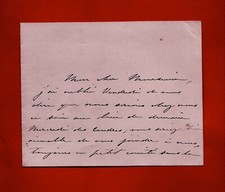 Mon cher Monsieur,
j'ai oublié Vendredi de vous
dire que nous serions chez nous
ce soir au lieu de
Mercredi des Cendres, vous seriez
aimable de vous joindre à nous
toujours en petit comité